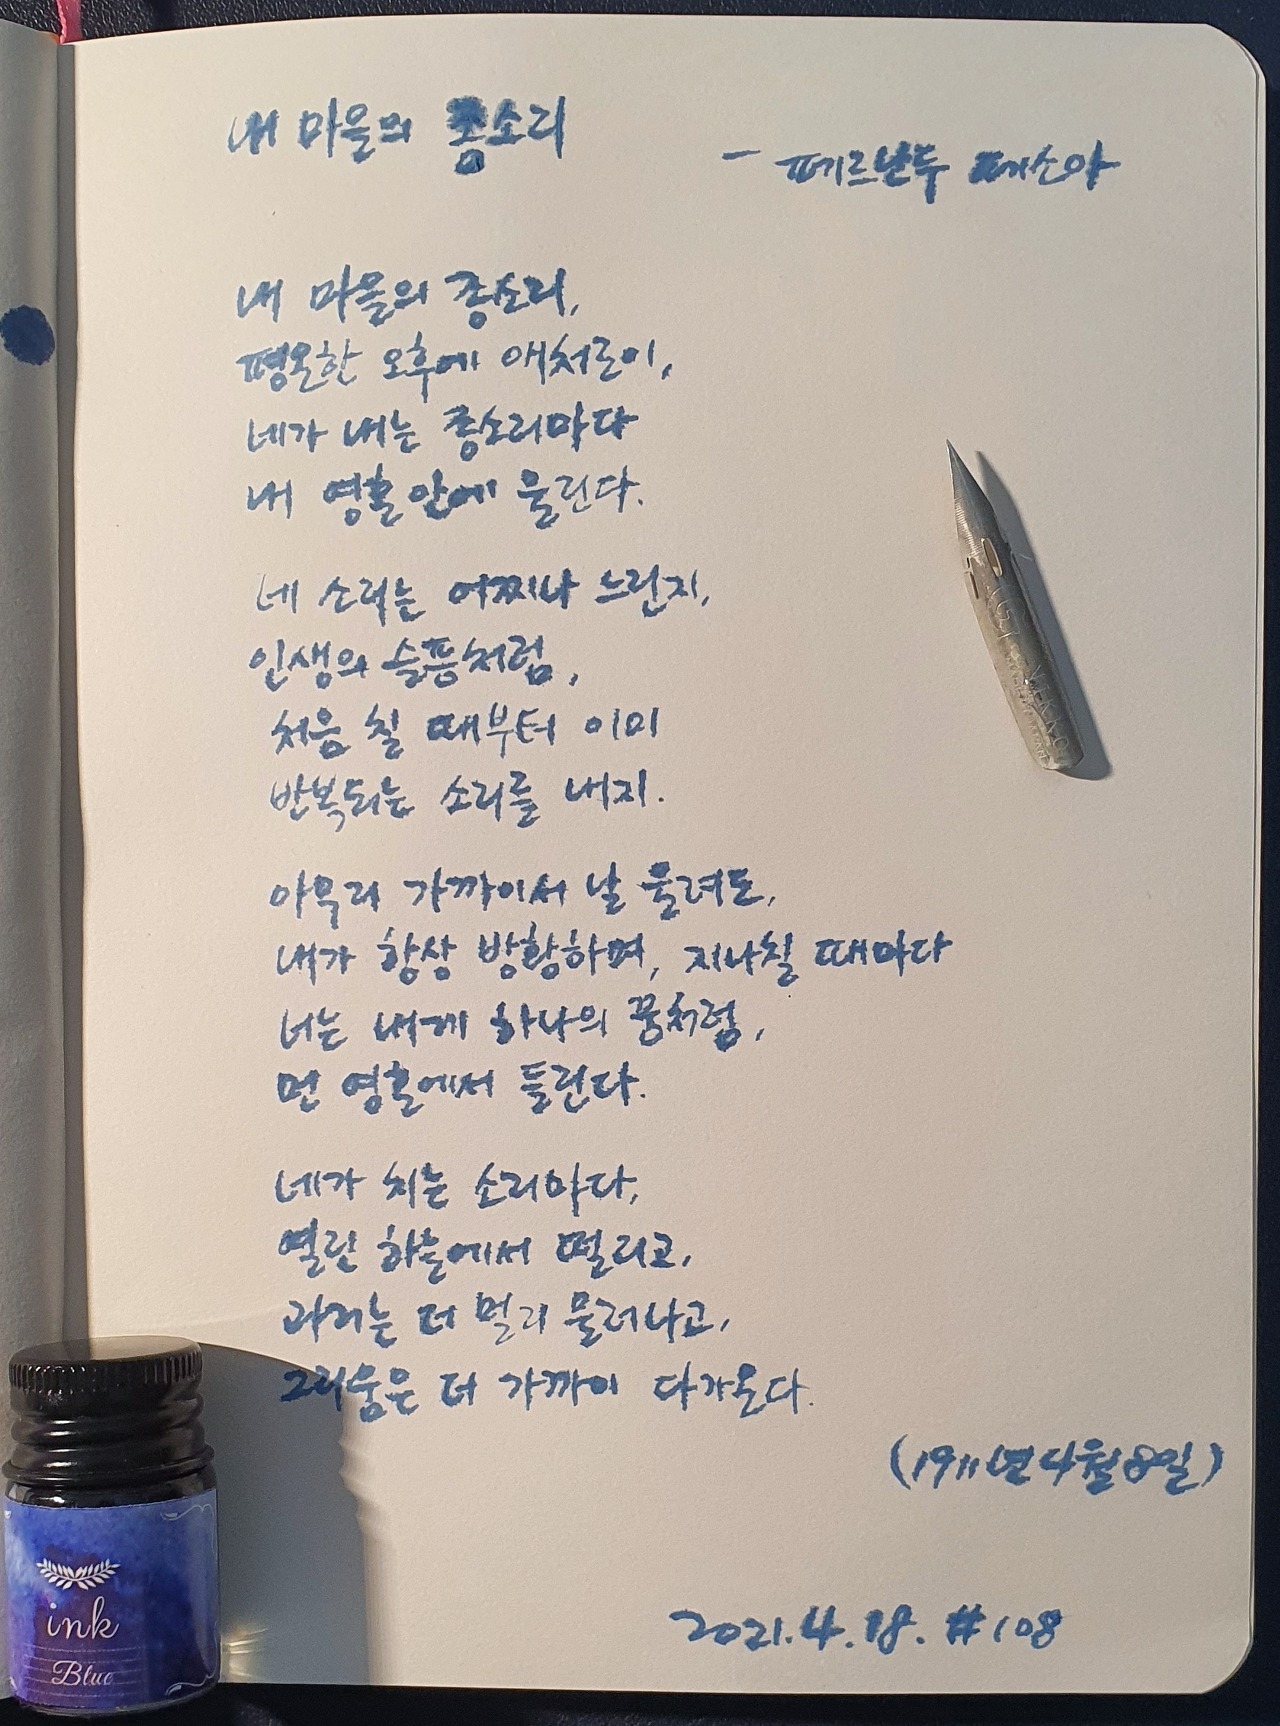 내 마을의 종소리
- 페르난두 페소아
내 마을의 종소리,
평온한 오후에 애처로이,
네가 내는 종소리마다
내 영혼 안에 울린다.
네 소리는 어찌나 느린지,
인생의 슬픔처럼,
처음 칠 때부터 이미
반복되는 소리를 내지.
아무리 가까이서 날 울려도,
내가 항상 방황하며, 지나칠 때마다
너는 내게 하나의 꿈처럼,
먼 영혼에서 들린다.
네가 치는 소리마다,
열린 하늘에서 떨리고,
과거는 더 멀리 물러나고,
그리움은 더 가까이 다가온다.
(1911년 4월 8일)
2021.4.18. #108
ink
Blue